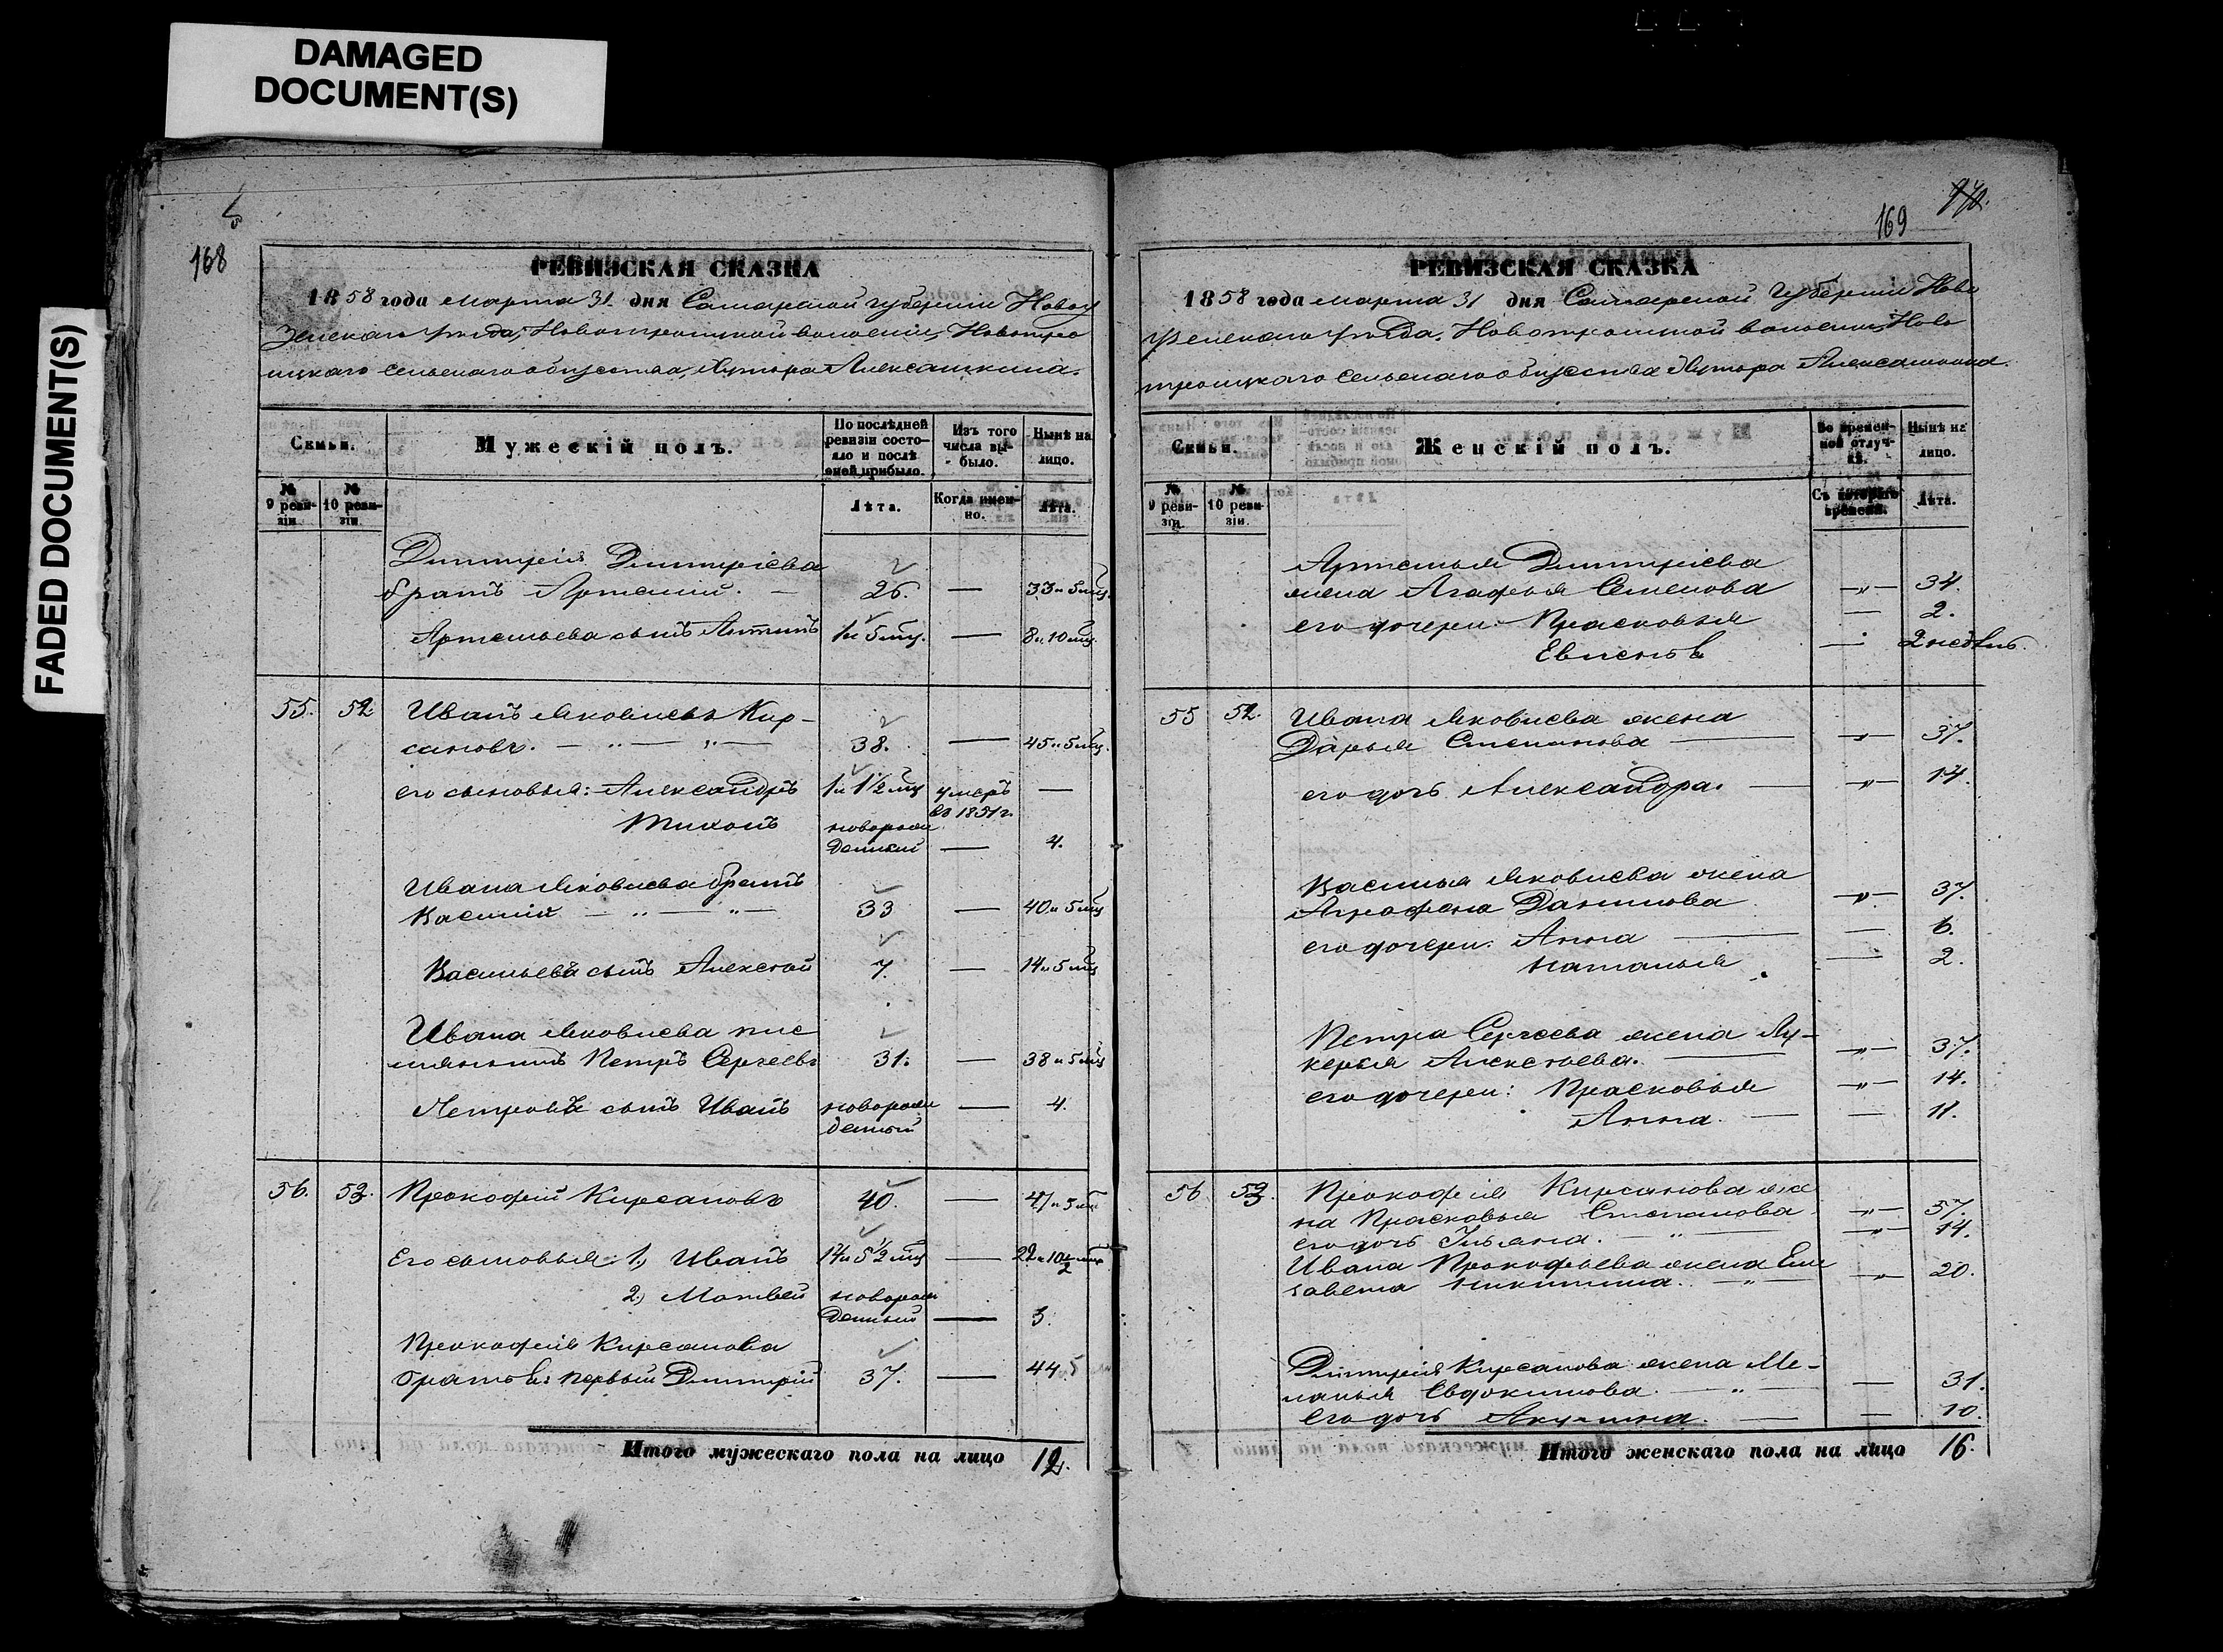 DAMAGED
DOCUMENT(S)
FADED DOCUMENT(S)
168
РЕВИЗСКАЯ СКАЗКА
1858 года марта 31 дня Самарской губернии Новоу
зенскаго уѣзда, Новотроицкой волости, Новотро
ицкаго сельскаго общества, Хутора Алексашкина.
Семьи.
Мужескій полъ.
По послѣдней
ревизіи состо-
яло и послѣ
оней прибыло.
Изъ того
числа вы-
было.
Нынѣ на
лицо.
№
9 реви-
зіи
№
10 реви-
зіи.
Лѣта.
Когда имен-
но.
Лѣта.
Дмитрія Дмитріева
братъ Артемій. — 26. — 33 и 5 мц.
Артемьева сынъ Антипъ 1 и 5 мц. — 8 и 10 мц
55. 52. Иванъ Яковлевъ Кир-
сановъ. — „ — „ — 38. — 45 и 5 мц.
его сыновья: Александръ 1 и 1½ мц умеръ —
въ 1851 г.
Тихонъ новорож
денный — 4.
Ивана Яковлева братъ
Василій — „ — „ — 33 — 40 и 5 мц
Васильевъ сынъ Алексѣй 7. — 14 и 5 мц
Ивана Яковлева пле
мянникъ Петръ Сергеевъ 31. — 38 и 5 мц
Петровъ сынъ Иванъ новорож — 4.
денный
56. 53. Прокофій Кирсановъ 40. — 47 и 5 мц
Его сыновья: 1.) Иванъ 14 и 5½ мц — 22 и 10½ мц
2.) Матвей новорож
денный — 3.
Прокофія Кирсанова
братья: первый Дмитрій 37. — 44. 5
Итого мужескаго пола на лицо 12.
169
РЕВИЗСКАЯ СКАЗКА
1858 года марта 31 дня Самарской Губерніи Ново
узенскаго уѣзда, Новотроицкой волости, Ново
троицкаго сельскаго общества Хутора Алексашкина.
Семьи.
Женскій полъ.
Во времен-
ной отлуч-
кѣ.
Нынѣ на
лицо.
№
9 реви-
зіи.
№
10 реви-
зіи.
Съ котораго
времени.
Лѣта.
Артемья Дмитріева
жена Агафья Семенова — „ — 34.
его дочери Прасковья — 2.
— 2 недѣль.
55 52. Ивана Яковлева жена
Дарья Степанова — — „ — 37.
его дочь Александра. — — „ — 14.
Василья Яковлева жена
Аграфена Данилова — „ — 37.
его дочери: Анна — — 6.
Наталья — 2.
Петра Сергеева жена Лу-
керья Алексѣева. — — „ — 37.
его дочери: Прасковья — „ — 14.
Анна. — — 11.
56 53. Прокофія Кирсанова же
на Прасковья Степанова — „ — 57.
его дочь Ульяна. — „ — — „ — 14.
Ивана Прокофьева жена Ели
завета Никитина. — „ — — „ — 20.
Дмитрія Кирсанова жена Ме-
ланья Евдокимова. — „ — — 31.
его дочь Акулина. — — 10.
Итого женскаго пола на лицо 16.